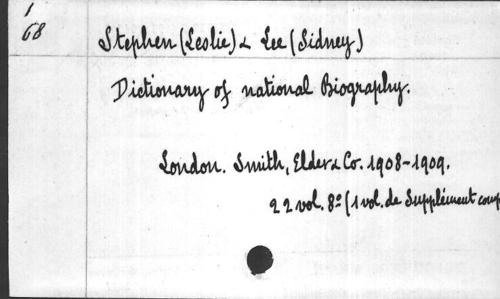 1
68
Stephen (Leslie) & Lee (Sidney)
Dictionary of national Biography.
London. Smith, Elder & Co. 1908-1909.
22 vol. 8º (1 vol. de Supplément comp